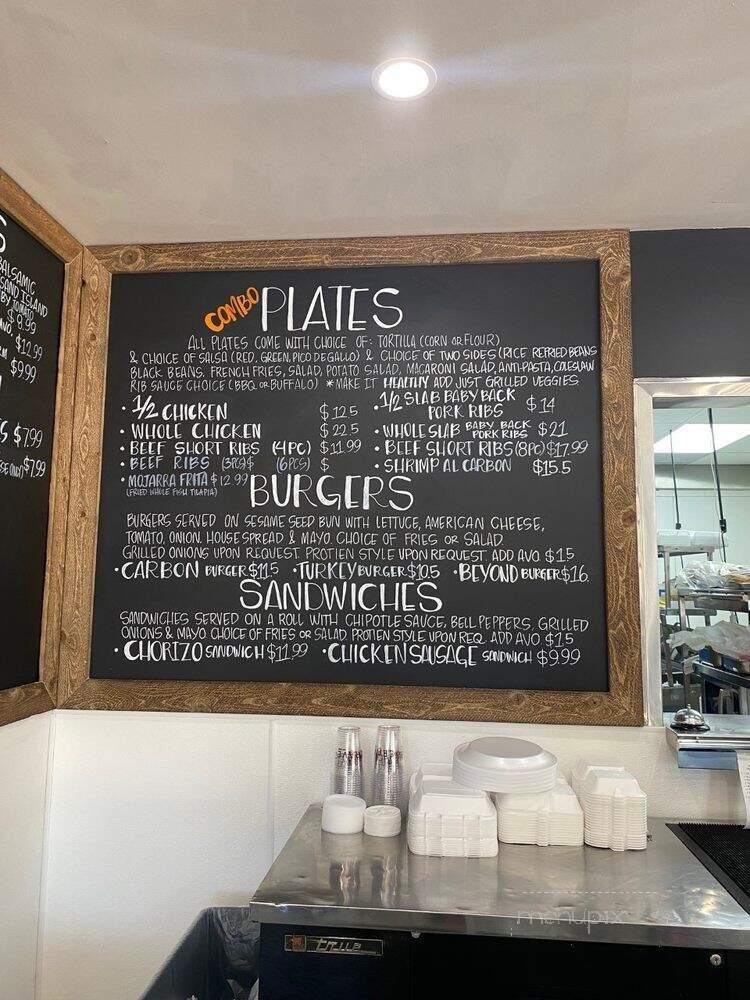 S
BALSAMIC
SAND ISLAND
BY TOMATO
$8.99
AVO. $12.99
$9.99
S $7.99
$7.99
COMBO PLATES
ALL PLATES COME WITH CHOICE OF: TORTILLA (CORN OR FLOUR)
& CHOICE OF SALSA (RED, GREEN, PICO DE GALLO) & CHOICE OF TWO SIDES (RICE REFRIED BEANS
BLACK BEANS, FRENCH FRIES, SALAD, POTATO SALAD, MACARONI SALAD, ANTI-PASTA, COLESLAW
RIB SAUCE CHOICE (BBQ OR BUFFALO) *MAKE IT HEALTHY ADD JUST GRILLED VEGGIES
• 1/2 CHICKEN $12.5
• WHOLE CHICKEN $22.5
• BEEF SHORT RIBS (4PC) $11.99
• BEEF RIBS (3PC)$ (6PCS) $
• MOJARRA FRITA $12.99
(FRIED WHOLE FISH TILAPIA)
• 1/2 SLAB BABY BACK
PORK RIBS $14
• WHOLE SLAB BABY BACK
PORK RIBS $21
• BEEF SHORT RIBS (8PC) $17.99
• SHRIMP AL CARBON $15.5
BURGERS
BURGERS SERVED ON SESAME SEED BUN WITH LETTUCE, AMERICAN CHEESE,
TOMATO, ONION, HOUSE SPREAD & MAYO. CHOICE OF FRIES OR SALAD
GRILLED ONIONS UPON REQUEST. PROTIEN STYLE UPON REQUEST. ADD AVO. $1.5
• CARBON BURGER $11.5 • TURKEY BURGER $10.5 • BEYOND BURGER $16.
SANDWICHES
SANDWICHES SERVED ON A ROLL WITH CHIPOTLE SAUCE, BELL PEPPERS, GRILLED
ONIONS & MAYO. CHOICE OF FRIES OR SALAD PROTIEN STYLE UPON REQ. ADD AVO $1.5
• CHORIZO SANDWICH $11.99 • CHICKEN SAUSAGE SANDWICH $9.99
menupix
true